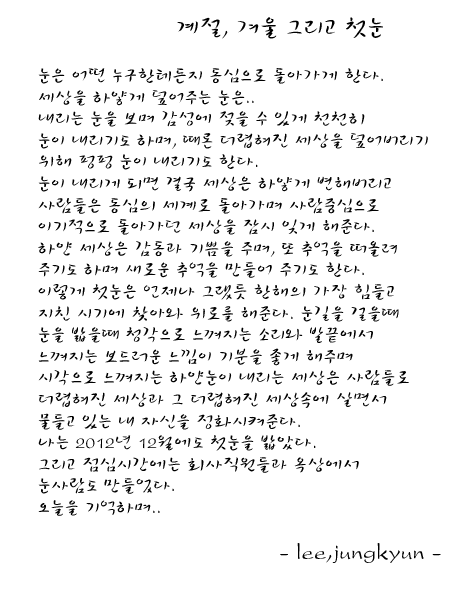 계절, 겨울 그리고 첫눈
눈은 어떤 누구한테든지 동심으로 돌아가게 한다.
세상을 하얗게 덮어주는 눈은..
내리는 눈을 보며 감성에 젖을 수 있게 천천히
눈이 내리기도 하며, 때론 더렵혀진 세상을 덮어버리기
위해 펑펑 눈이 내리기도 한다.
눈이 내리게 되면 결국 세상은 하얗게 변해버리고
사람들은 동심의 세계로 돌아가며 사람중심으로
이기적으로 돌아가던 세상을 잠시 잊게 해준다.
하얀 세상은 감동과 기쁨을 주며, 또 추억을 떠올려
주기도 하며 새로운 추억을 만들어 주기도 한다.
이렇게 첫눈은 언제나 그랬듯 한해의 가장 힘들고
지친 시기에 찾아와 위로를 해준다. 눈길을 걸을때
눈을 밟을때 청각으로 느껴지는 소리와 발끝에서
느껴지는 보드러운 느낌이 기분을 좋게 해주며
시각으로 느껴지는 하얀눈이 내리는 세상은 사람들로
더렵혀진 세상과 그 더렵혀진 세상속에 살면서
물들고 있는 내 자신을 정화시켜준다.
나는 2012년 12월에도 첫눈을 밟았다.
그리고 점심시간에는 회사직원들과 옥상에서
눈사람도 만들었다.
오늘을 기억하며..
- lee,jungkyun -